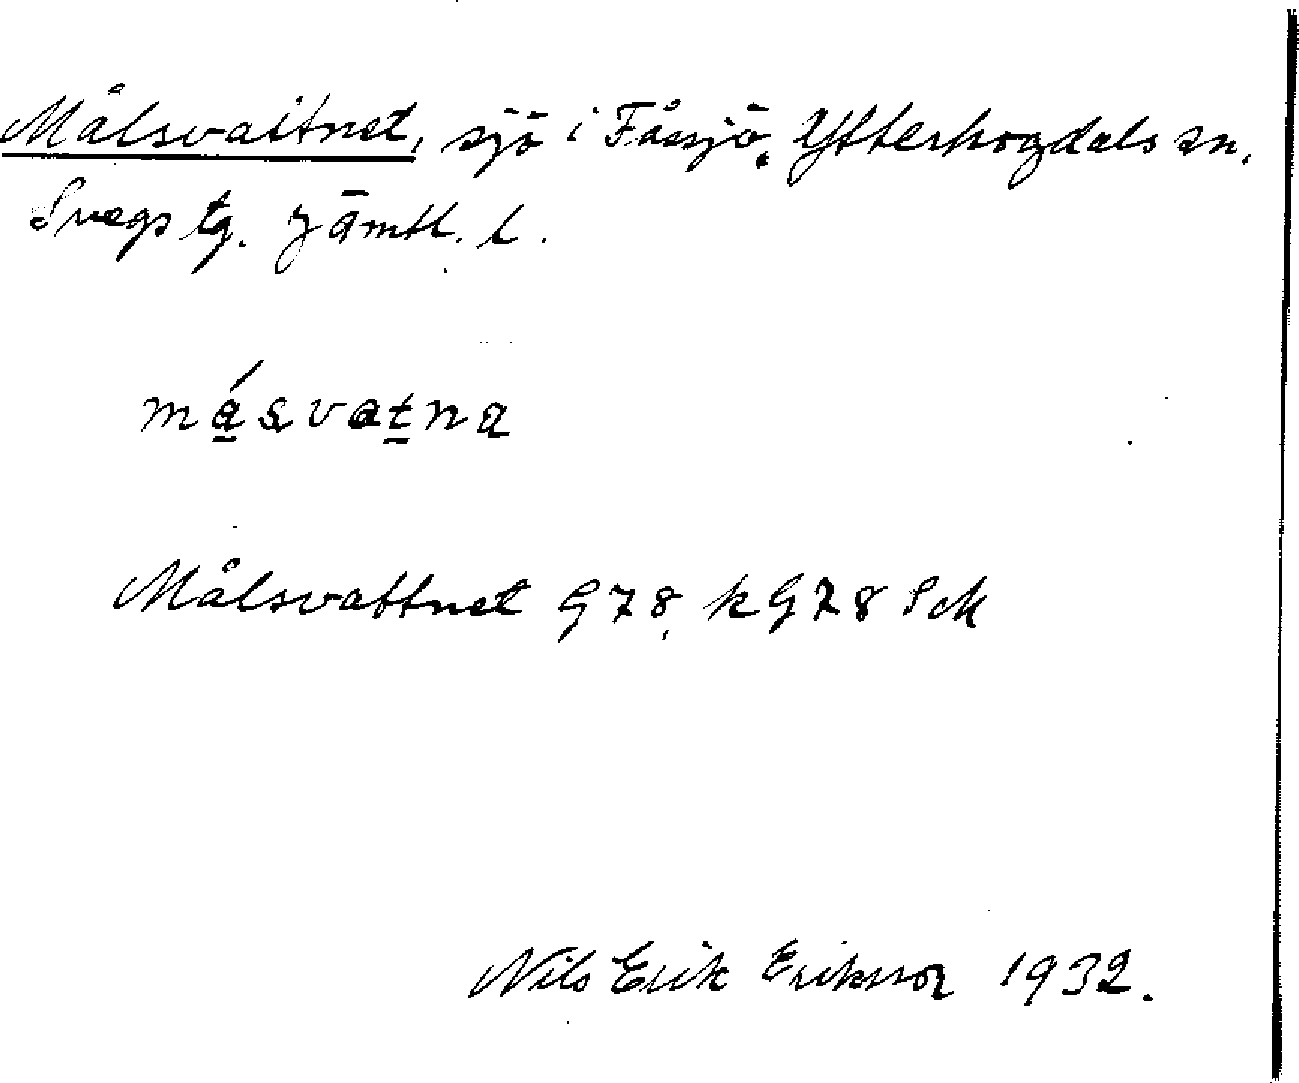 Målsvattnet, sjö i Fåssjö, Ytterhogdals sn.
Svegs tg. Jämtl. l.
másvatna
Målsvattnet G78, k G78 Sck
Nils Erik Eriksson 1932.